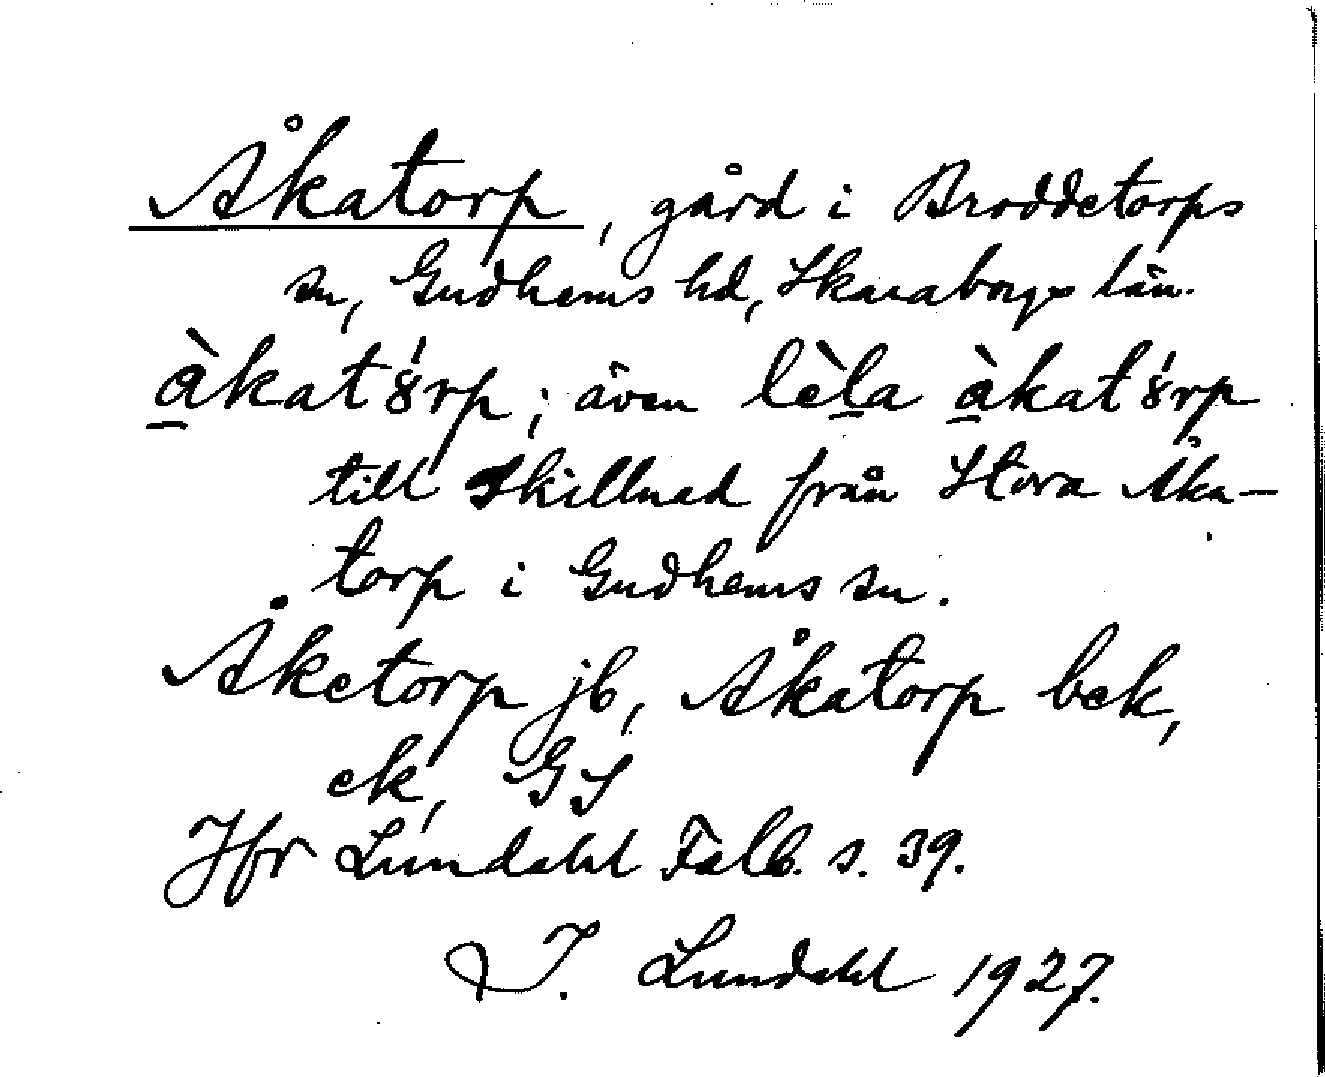 Åkatorp, gård i Broddetorps
sn, Gudhems hd, Skaraborgs län.
àkat'ȣrp; även lèla àkat'ȣrp
till skillnad från Stora Åka-
torp i Gudhems sn.
Åketorp jb, Åkatorp bek,
ek, GS
Jfr Lundahl Falb. s. 39.
I. Lundahl 1927.